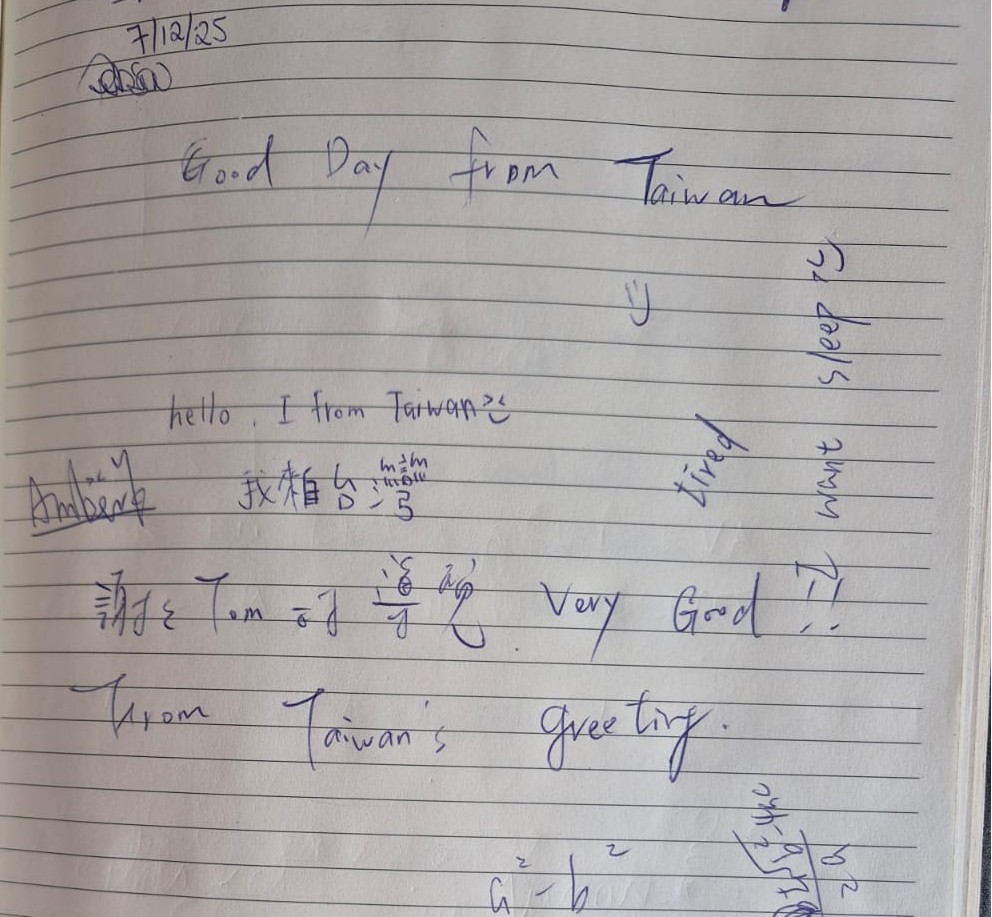 7/12/25
Good Day from Taiwan
hello, I from Taiwan
我賴台灣
謝了 Tom Very Good !!
From Taiwan's greeting.
a² - b²
tired
I want sleep